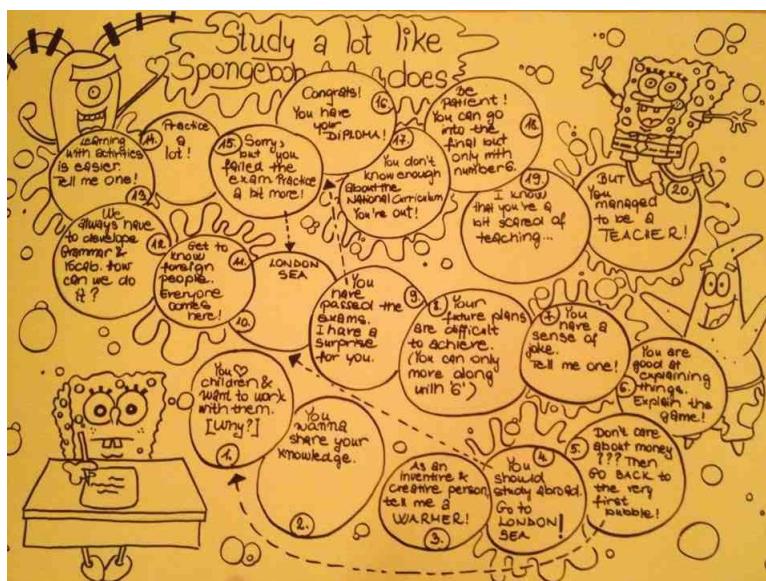 Study a lot like
Spongebob does
1.
You ♡
children &
want to work
with them.
[Why?]
2.
You
wanna
share your
knowledge.
3.
As an
inventive &
creative person,
tell me a
WARMER!
4.
You
should
study abroad.
Go to
LONDON
SEA!
5.
Don't care
about money
??? Then
GO BACK to
the very
first
bubble!
6.
You are
good at
explaining
things.
Explain the
game!
7.
You
have a
sense of
joke.
Tell me one!
8.
Your
future plans
are difficult
to achieve.
(You can only
more along
with '6')
9.
You
have
passed the
exams.
I have a
surprise
for you.
10.
LONDON
SEA
11.
Get to
know
foreign
people.
Everyone
comes
here!
12.
We
always have
to develope
Grammar &
Vocab. How
can we do
it?
13.
Learning
with activities
is easier.
Tell me one!
14.
Practice
a
lot!
15.
Sorry,
but you
failed the
exam. Practice
a bit more!
16.
Congrats!
You have
your
DIPLOMA!
17.
You don't
know enough
about the
National Curriculum
You're out!
18.
Be
patient!
You can go
into the
final but
only with
number 6.
19.
I know
that you're a
bit scared of
teaching...
20.
BUT
You
managed
to be a
TEACHER!